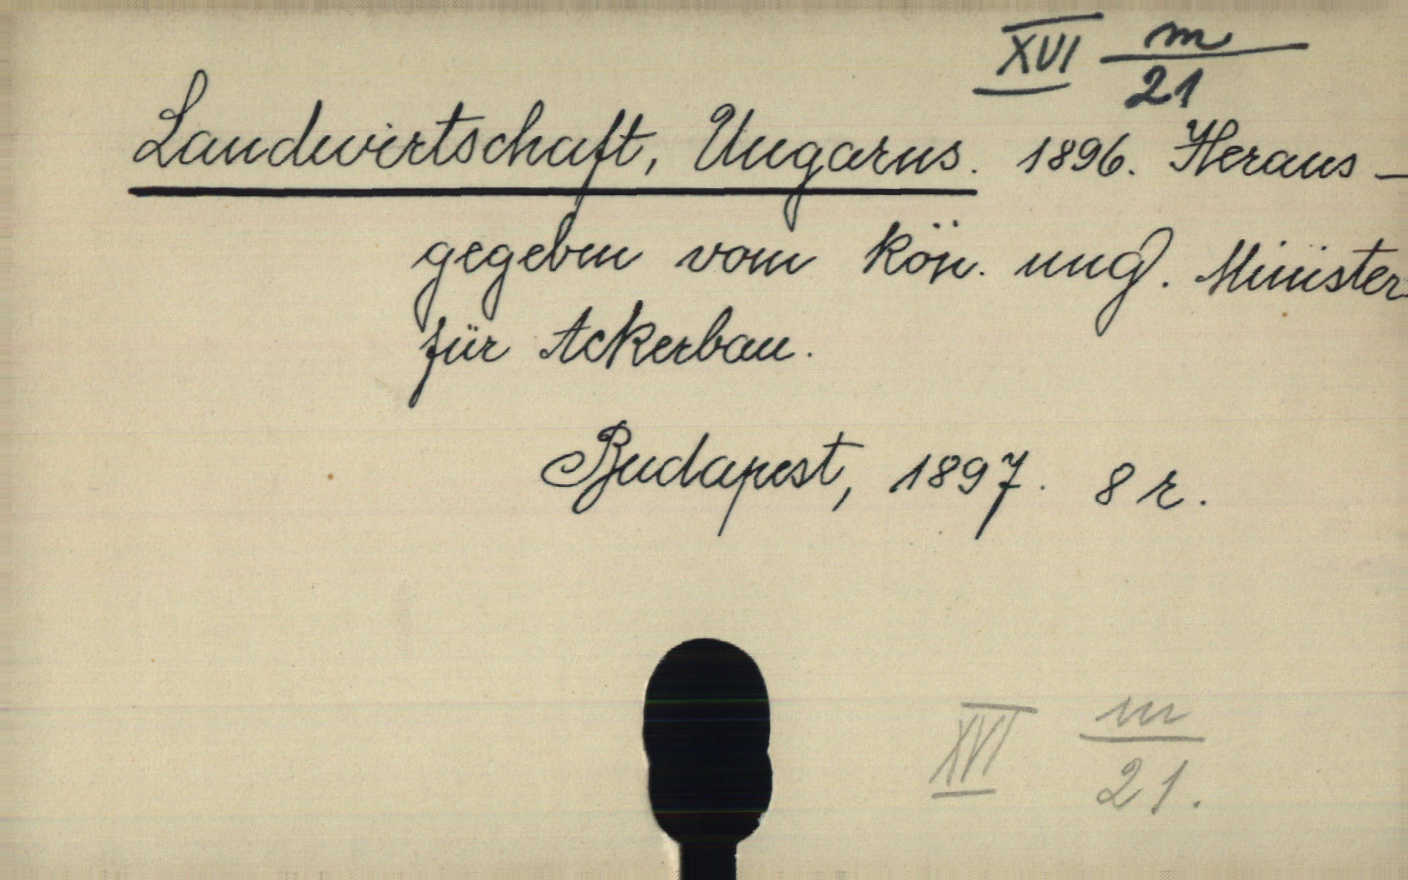 XVI m/21
Landwirtschaft, Ungarns. 1896. Heraus-
gegeben vom kön. ung. Minister
für Ackerbau.
Budapest, 1897. 8 r.
XVI m/21.